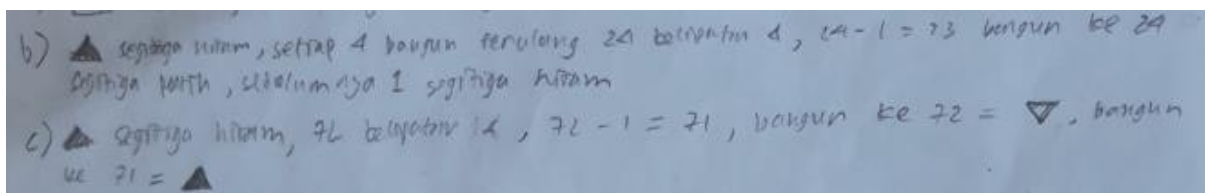 b) ▲ segitiga hitam, setiap 4 bangun terulang 24 kelipatan 4, 24 - 1 = 23 bangun ke 24
segitiga putih, sebelumnya 1 segitiga hitam
c) ▲ segitiga hitam, 72 kelipatan 4, 72 - 1 = 71, bangun ke 72 = ▽, bangun
ke 71 = ▲